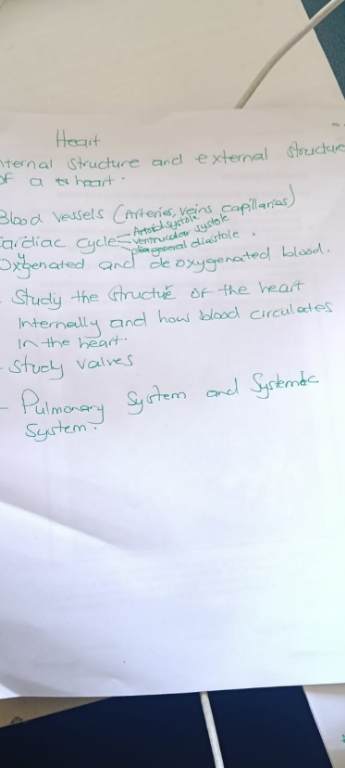 Heart
nternal structure and external structure
of a heart.
Blood vessels (Arteries, veins capillaries)
Cardiac cycle Artrial systole
ventrucular systole
general diastole.
Oxygenated and deoxygenated blood.
- Study the structue of the heart
Internally and how blood circulates
in the heart.
- Study valves
- Pulmonary System and Systemic
System.